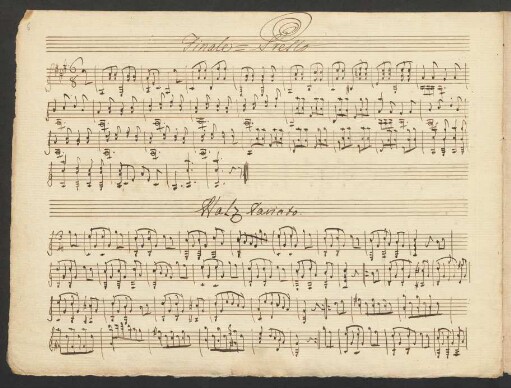 Finale = Presto
6
8
Walz Variato
3